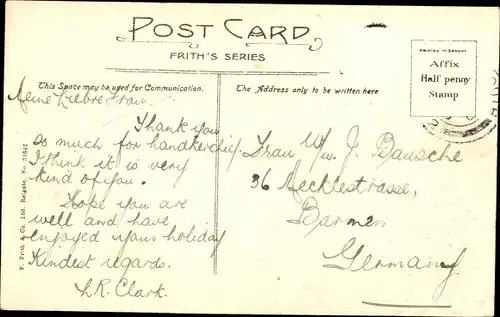 POST CARD
FRITH'S SERIES
This Space may be used for Communication.
The Address only to be written here
PRINTED IN SAXONY
Affix
Half penny
Stamp
Meine Liebre Frau.
Thank you
so much for handkerchief.
I think it is very
kind of you.
Hope you are
well and have
enjoyed your holiday
Kindest regards.
L R. Clark.
Frau Ww. J. Bausche
36 Mecklestrasse,
Barmen
Germany
F. Frith & Co. Ltd. Reigate. No.